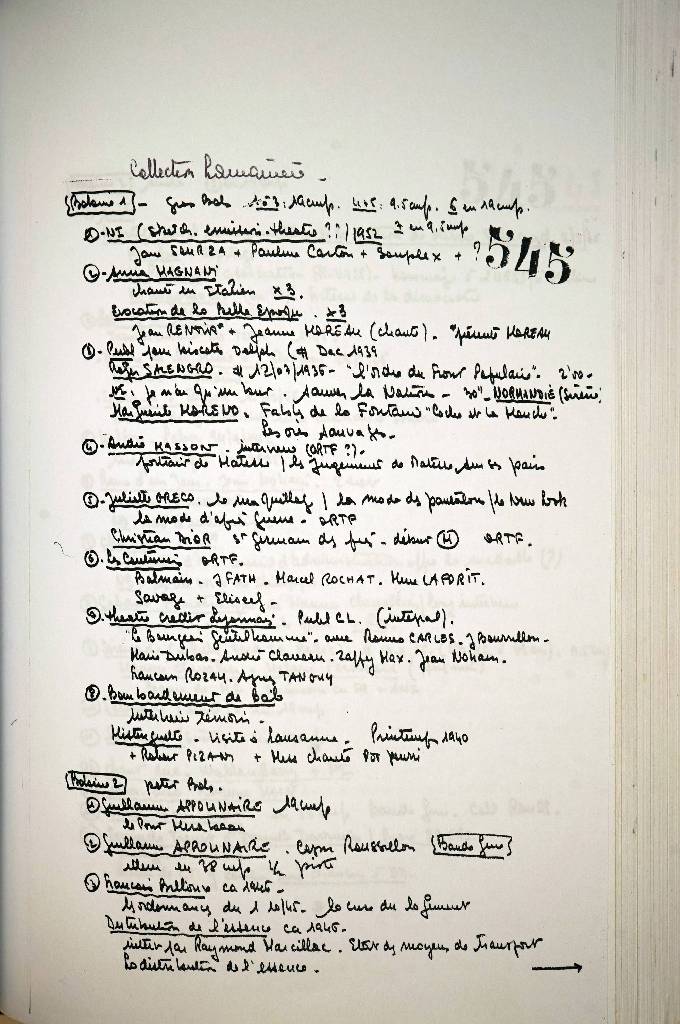 Collection
Bobine 1 - gros Bob. 1 à 3 : 19 cmp. 4 et 5 : 9.5 cmp. 6 en 19 cmp.
7 en 9,5 cmp
545
① - NI (Sketch. emission. theatre ??) 1952
Jane SOURZA + Pauline Carton + Souplex + ?
② - Anna MAGNANI
chante en Italien x 3.
Evocation de la Belle Epoque. x 3
Jean RENOIR + Jeanne MOREAU (chante). MOREAU
③ - Publ pour biscotte Delph ( Dec 1939
Roger SALENGRO. 12/07/1936 - "l'ordre du Front Populaire". 2'00 -
NI : je n'ai qu'un - 30" - NORMANDIE (Sirène)
Marguerite MORENO. Fables de La Fontaine "Coche et la Mouche".
Les oies sauvages -
④ - André MASSON. interview (ORTF ?) -
portrait de Matisse / les jugements de Matisse sur ses pairs
⑤ - Juliette GRECO. le maquillage / la mode des pantalons / le New Look
la mode d'après guerre - ORTF
Christian DIOR St Germain des prés - début ORTF.
⑥ - Les Couturiers ORTF.
Balmain - J FATH - Marcel ROCHAT -
⑦ - theatre credit Lyonnais. Publ C.L. (integral).
"le Bourgeois gentilhomme" - avec Romeo CARLES. J Bourvillon -
Marie Dubas. André Claveau. Zappy Max. Jean Nohain.
Francoise ROZAY.
⑧ - Bombardement de
Interview témoin -
Mistinguette - visite à Lausanne - Printemps 1940
+ Robert PIZANI + Miss chante Pot pourri
Bobine 2 petite Bob.
① Guillaume APPOLINAIRE 19 cmp
le Pont Mirabeau
② Guillaume APPOLINAIRE. Roussillon
idem en 38 cmp 1/2 piste
③ Francois Billoux ca 1945 -
les ordonnances du 1 10/45 - la crise du logement
Distribution de l'essence ca 1945 -
interv par Raymond Marcillac. Etat des moyens de Transport
La distribution de l'essence.